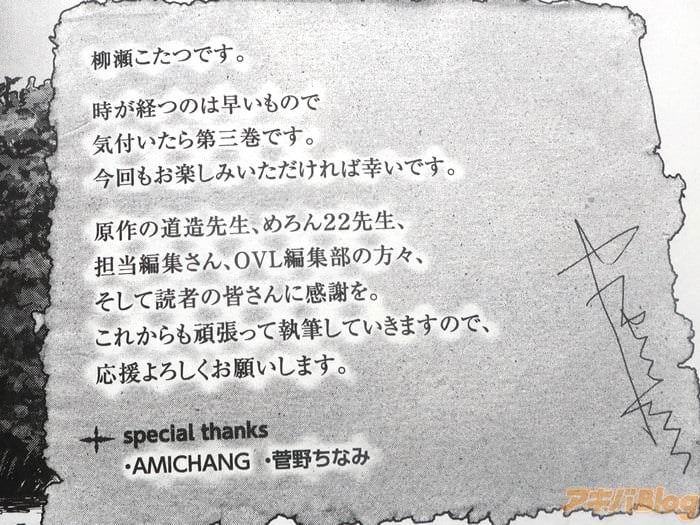 柳瀬こたつです。
時が経つのは早いもので
気付いたら第三巻です。
今回もお楽しみいただければ幸いです。
原作の道造先生、めろん22先生、
担当編集さん、OVL編集部の方々、
そして読者の皆さんに感謝を。
これからも頑張って執筆していきますので、
応援よろしくお願いします。
special thanks
・AMICHANG ・菅野ちなみ
アキバBlog